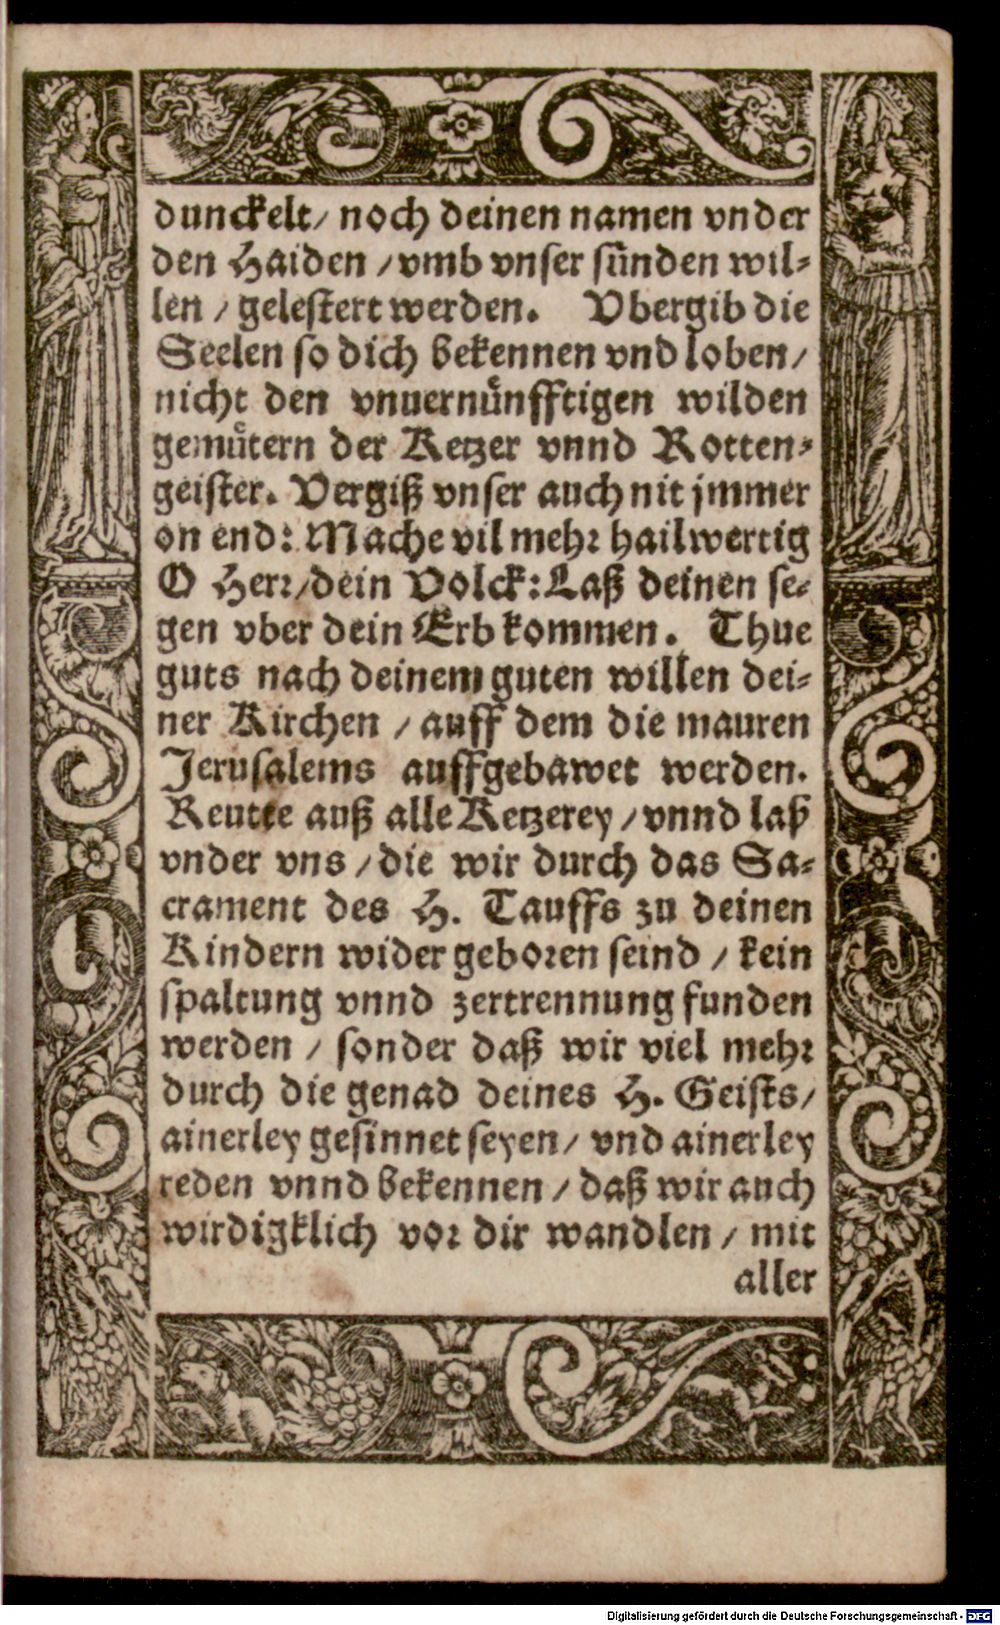 dunckelt/ noch deinen namen vnder
den Haiden /vmb vnser sünden wil⸗
len / gelestert werden. Vbergib die
Seelen so dich bekennen vnd loben/
nicht den vnuernuͤnfftigen wilden
gemuͤtern der Ketzer vnnd Rotten⸗
geister. Vergiß vnser auch nit jmmer
on end: Mache vil mehr hailwertig
O Herr/dein Volck: Laß deinen se⸗
gen vber dein Erb kommen. Thue
guts nach deinem guten willen dei⸗
ner Kirchen / auff dem die mauren
Jerusalems auffgebawet werden.
Reutte auß alle Ketzerey / vnnd laß
vnder vns / die wir durch das Sa⸗
crament des H. Tauffs zu deinen
Kindern wider geboren seind / kein
spaltung vnnd zertrennung funden
werden / sonder daß wir viel mehr
durch die genad deines H. Geists/
ainerley gesinnet seyen/ vnd ainerley
reden vnnd bekennen / daß wir auch
wirdigklich vor dir wandlen / mit
aller
Digitalisierung gefördert durch die Deutsche Forschungsgemeinschaft - DFG